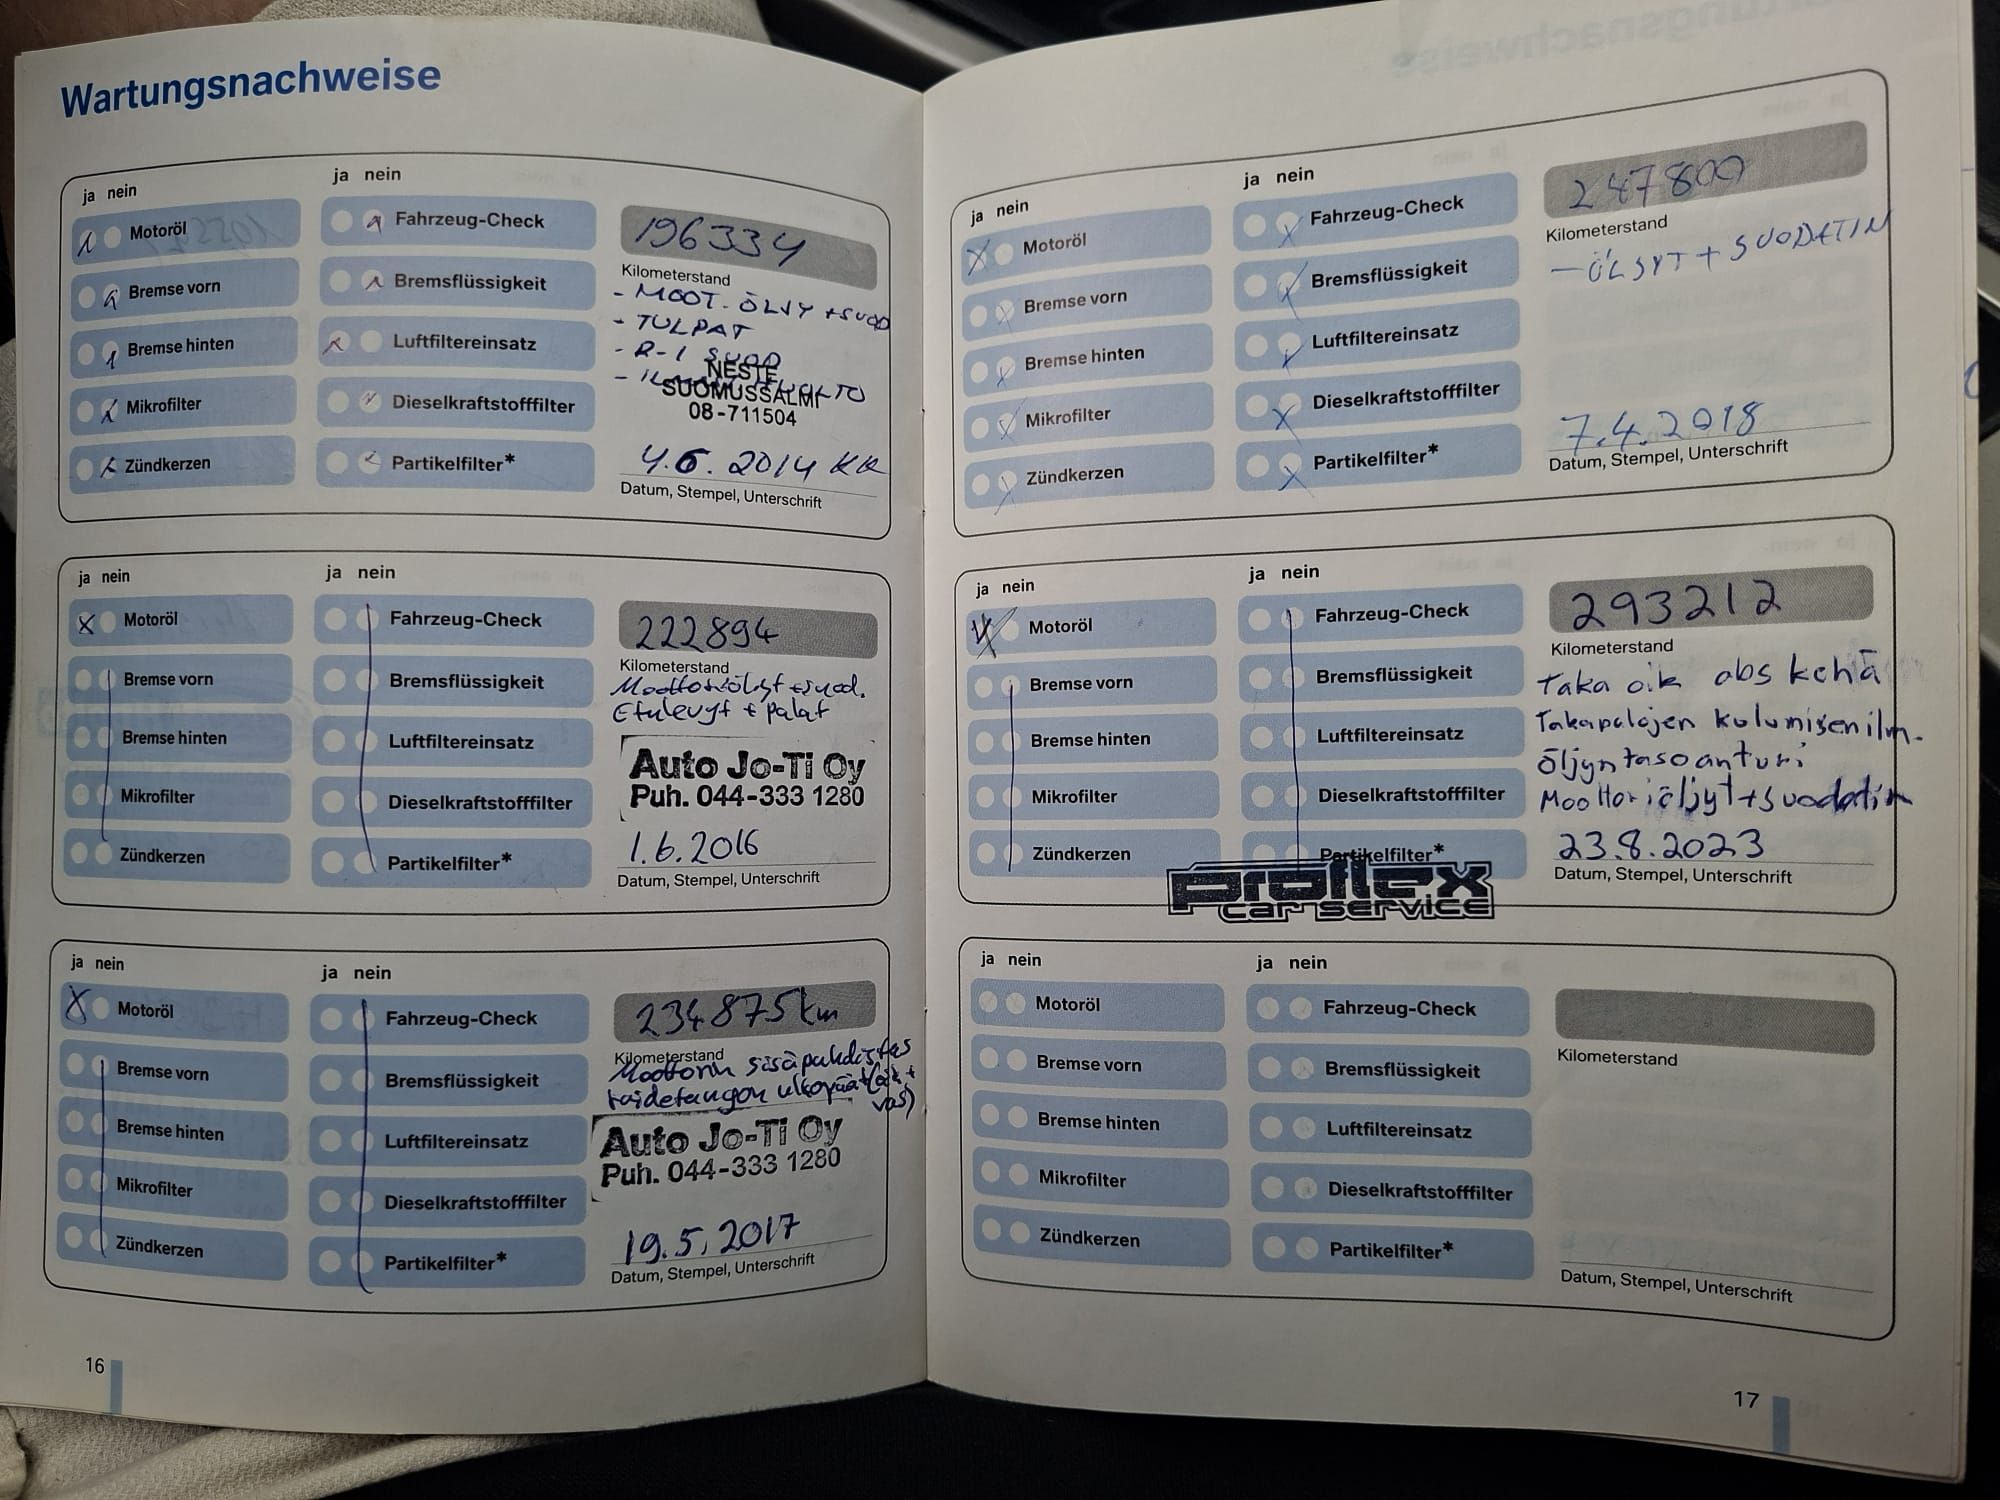 Wartungsnachweise
ja nein
Motoröl
Bremse vorn
Bremse hinten
Mikrofilter
Zündkerzen
ja nein
Fahrzeug-Check
Bremsflüssigkeit
Luftfiltereinsatz
Dieselkraftstofffilter
Partikelfilter*
196334
Kilometerstand
- MOOT. ÖLJY + SUOD
- TULPAT
- R-I SUOD
NESTE
SUOMUSSALMI
08-711504
4.6. 2014 KK
Datum, Stempel, Unterschrift
ja nein
Motoröl
Bremse vorn
Bremse hinten
Mikrofilter
Zündkerzen
ja nein
Fahrzeug-Check
Bremsflüssigkeit
Luftfiltereinsatz
Dieselkraftstofffilter
Partikelfilter*
222894
Kilometerstand
Moottoriöljyt + suod.
Etulevyt + palat
Auto Jo-Ti Oy
Puh. 044-333 1280
1.6.2016
Datum, Stempel, Unterschrift
ja nein
Motoröl
Bremse vorn
Bremse hinten
Mikrofilter
Zündkerzen
ja nein
Fahrzeug-Check
Bremsflüssigkeit
Luftfiltereinsatz
Dieselkraftstofffilter
Partikelfilter*
234875 km
Kilometerstand
Moottorin sisäpuhdistus
raidetangon ulkopäät (oik +
vas)
Auto Jo-Ti Oy
Puh. 044-333 1280
19.5.2017
Datum, Stempel, Unterschrift
16
ja nein
Motoröl
Bremse vorn
Bremse hinten
Mikrofilter
Zündkerzen
ja nein
Fahrzeug-Check
Bremsflüssigkeit
Luftfiltereinsatz
Dieselkraftstofffilter
Partikelfilter*
247800
Kilometerstand
- ÖLJYT + SUODATIN
7.4.2018
Datum, Stempel, Unterschrift
ja nein
Motoröl
Bremse vorn
Bremse hinten
Mikrofilter
Zündkerzen
ja nein
Fahrzeug-Check
Bremsflüssigkeit
Luftfiltereinsatz
Dieselkraftstofffilter
Partikelfilter*
proflex
car service
293212
Kilometerstand
Taka oik abs kehä
Takapalojen kulumisen ilm.
öljyntasoanturi
Moottoriöljyt + suodatin
23.8.2023
Datum, Stempel, Unterschrift
ja nein
Motoröl
Bremse vorn
Bremse hinten
Mikrofilter
Zündkerzen
ja nein
Fahrzeug-Check
Bremsflüssigkeit
Luftfiltereinsatz
Dieselkraftstofffilter
Partikelfilter*
Kilometerstand
Datum, Stempel, Unterschrift
17